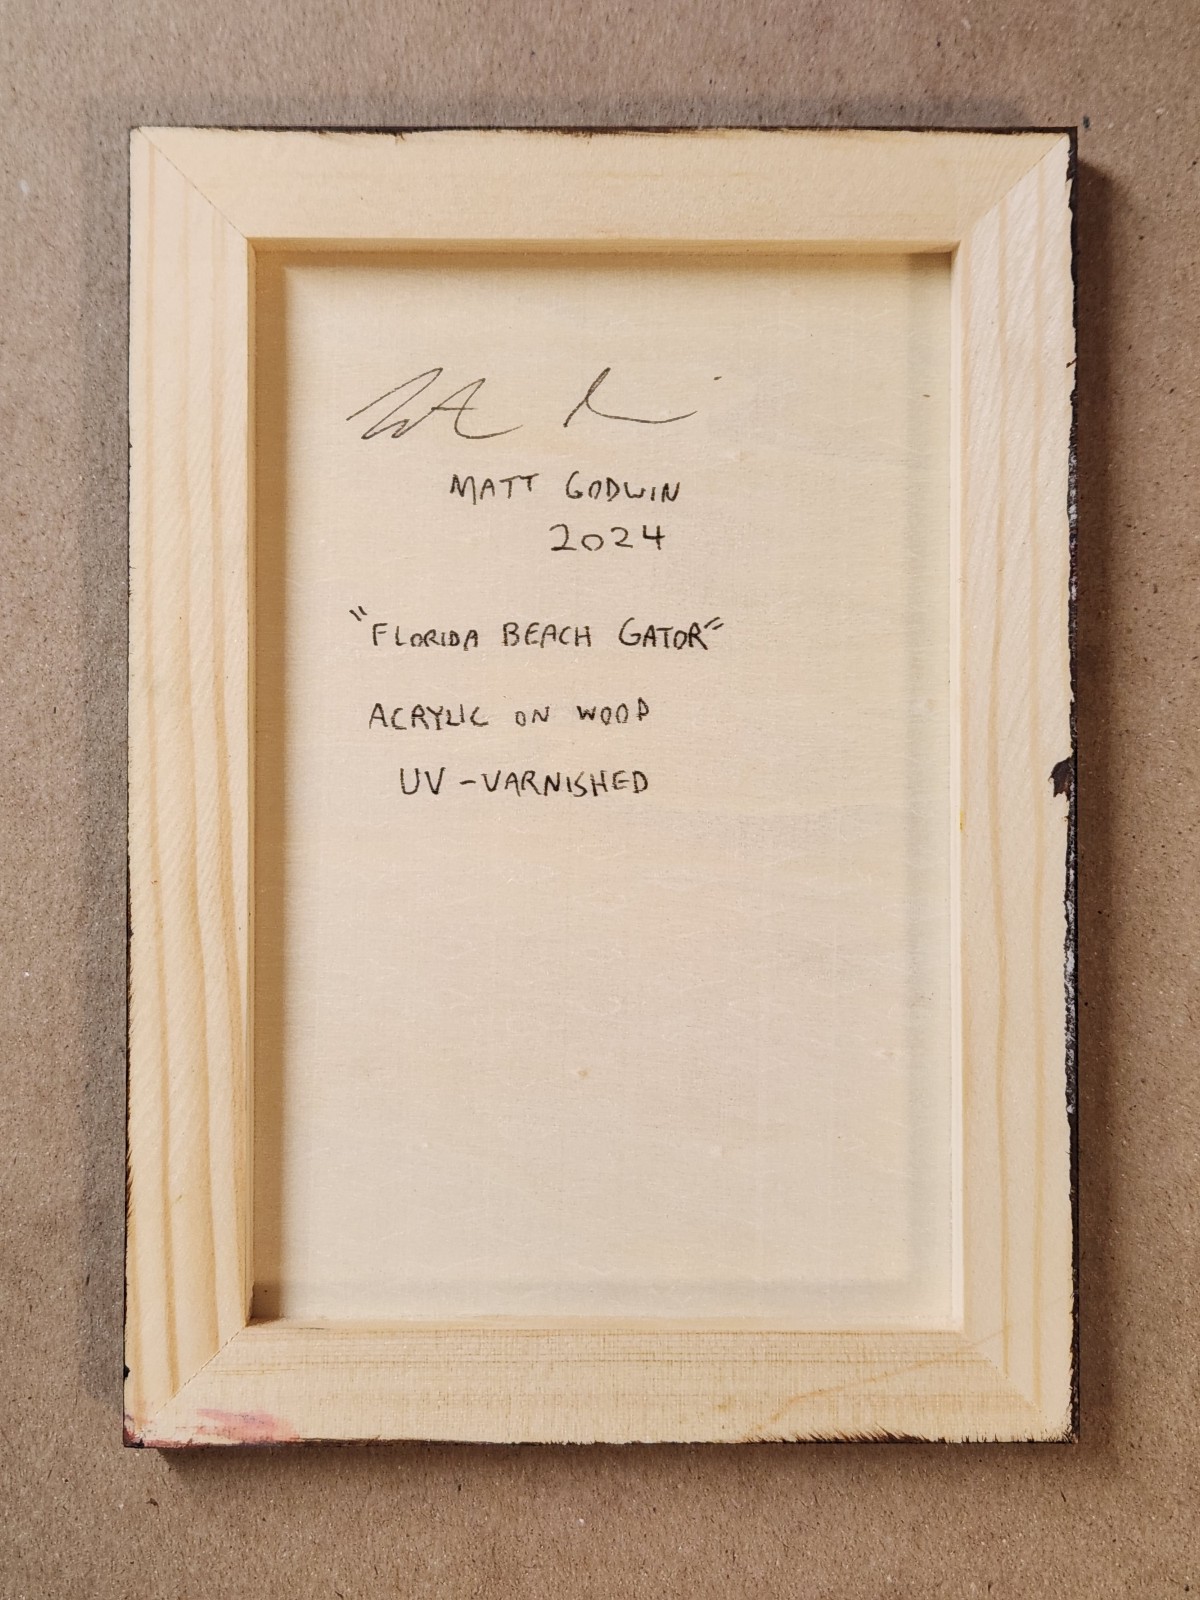 MATT GODWIN
2024
"FLORIDA BEACH GATOR"
ACRYLIC ON WOOD
UV-VARNISHED